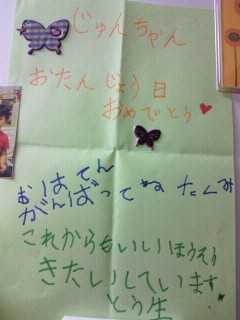 じゅんちゃん
おたんじょう日
おめでとう
おはてん
がんばってね たくみ
これからもいいほうそう
きたいしています
とう生